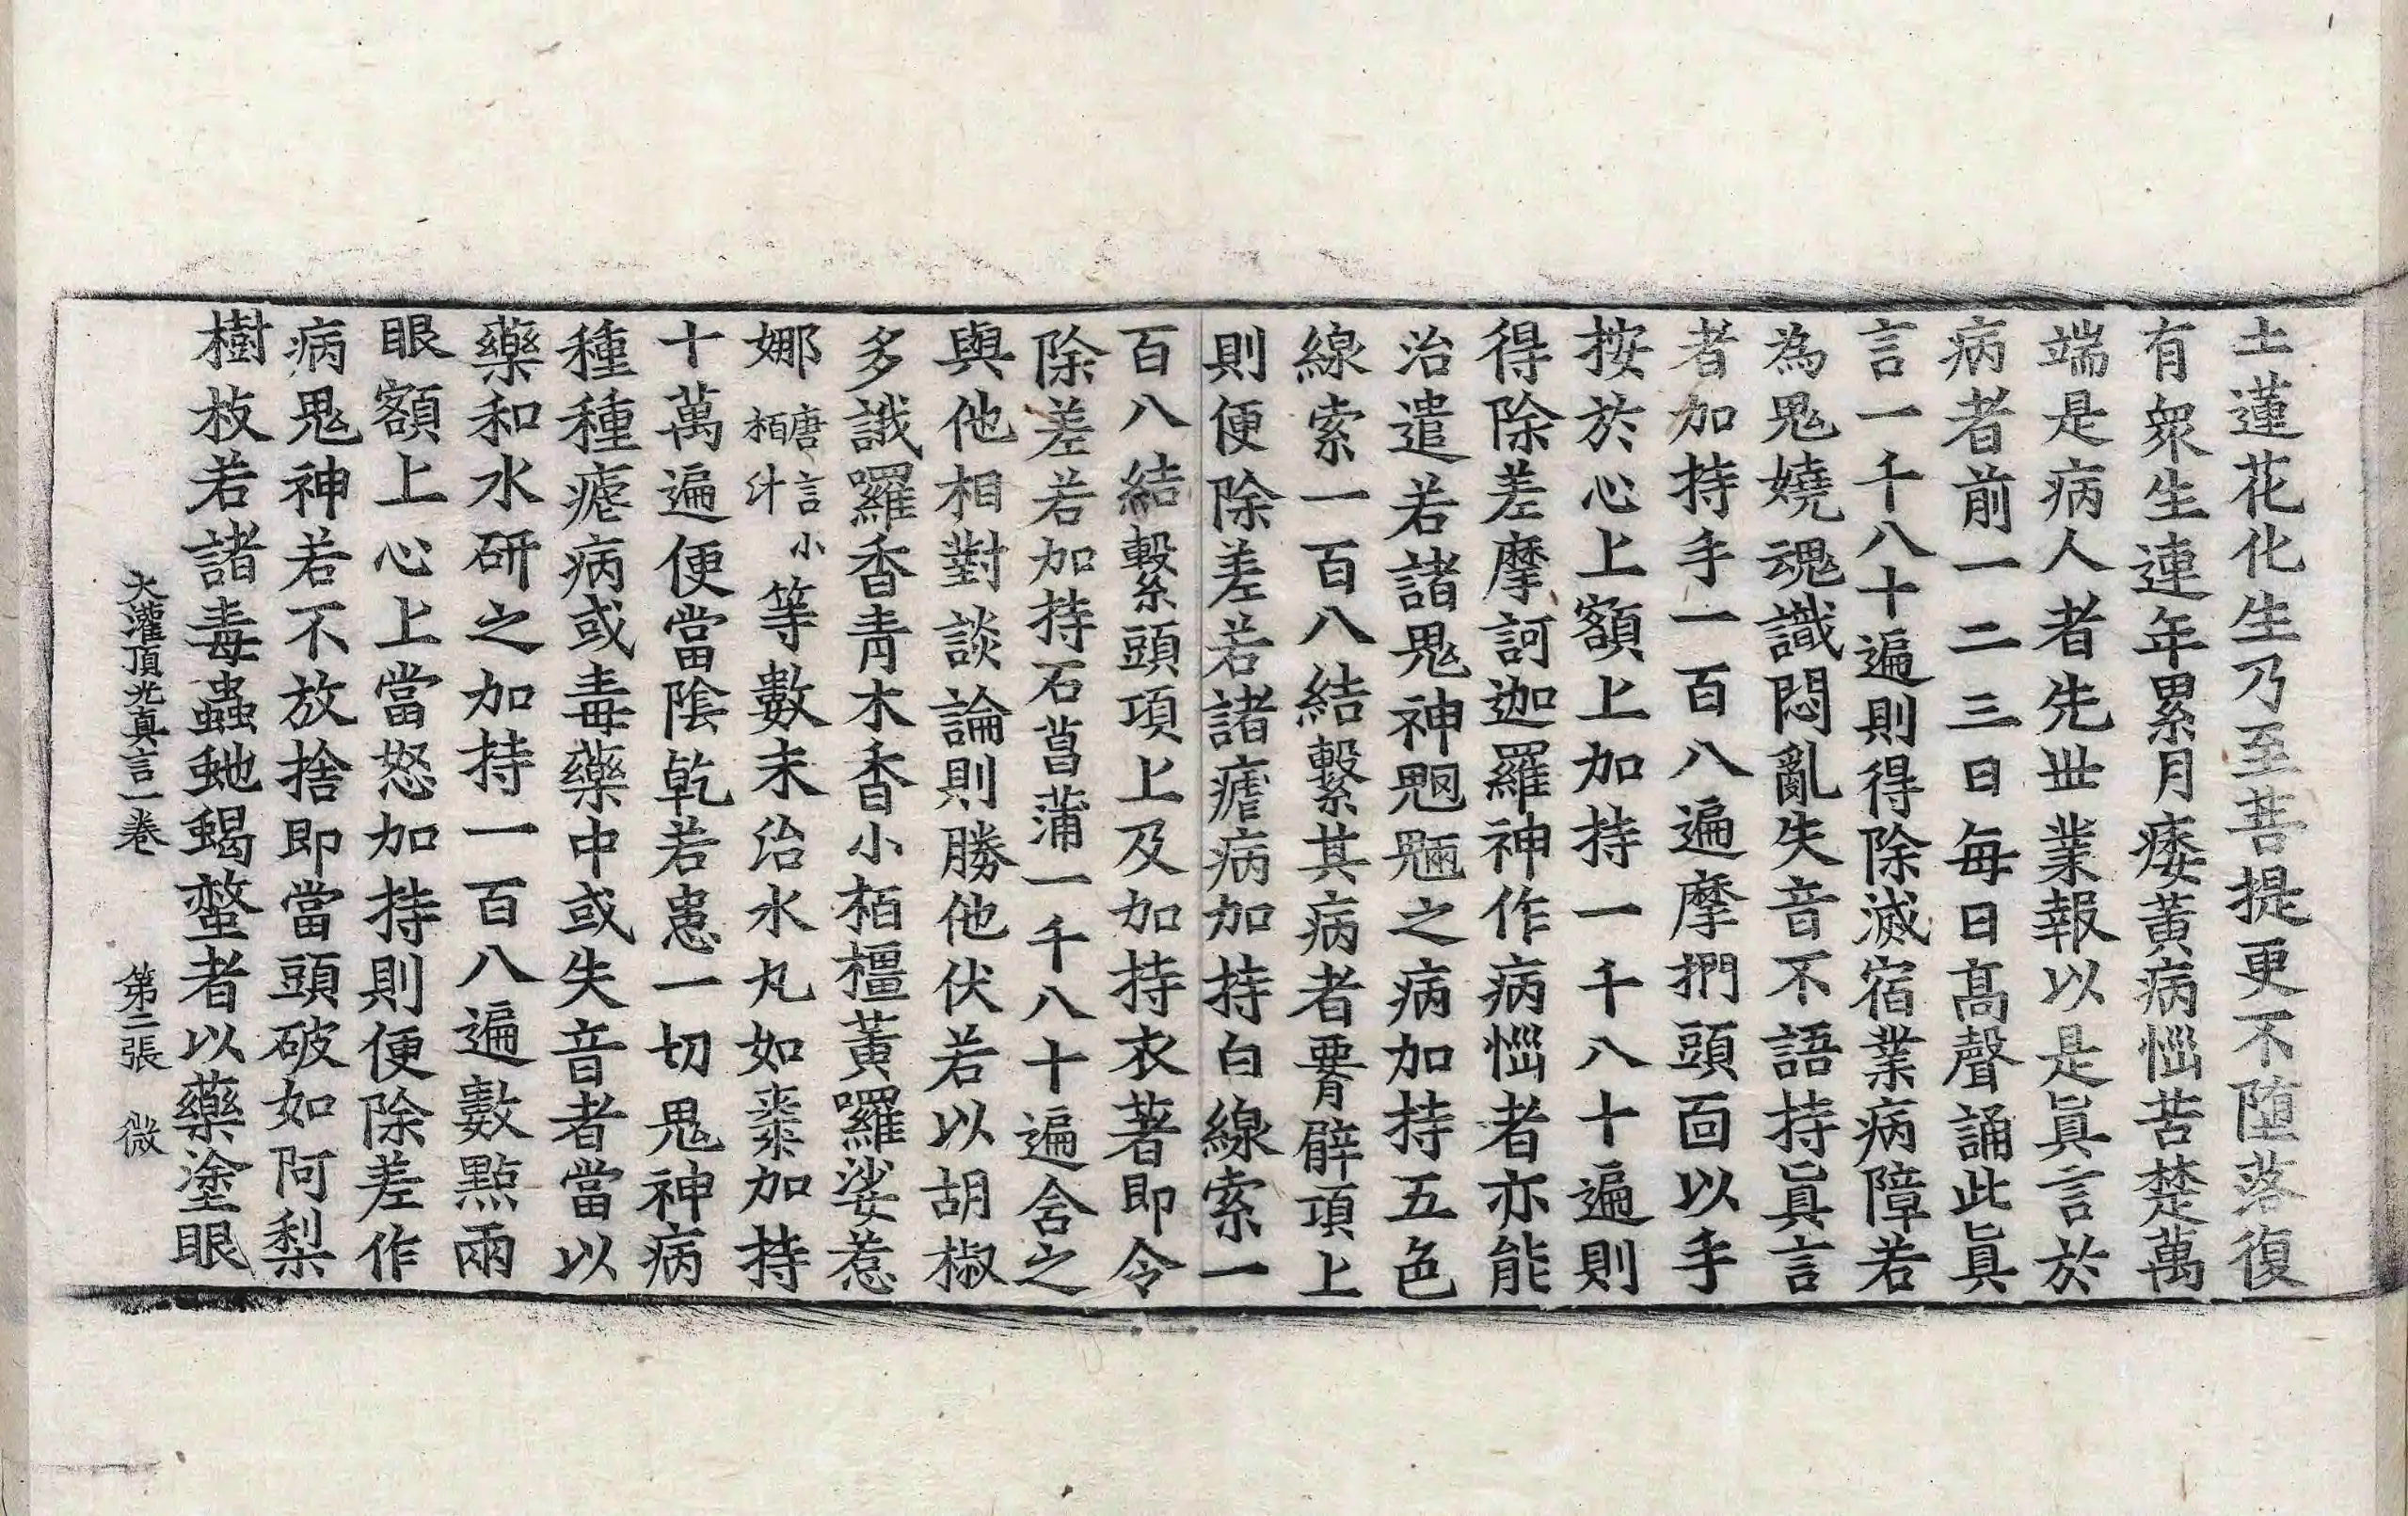 土蓮花化生乃至菩提更不墮落復
有衆生連年累月痿黃病惱苦楚萬
端是病人者先世業報以是眞言於
病者前一二三日每日高聲誦此眞
言一千八十遍則得除滅宿業病障若
為鬼嬈魂識悶亂失音不語持眞言
者加持手一百八遍摩捫頭面以手
按於心上額上加持一千八十遍則
得除差摩訶迦羅神作病惱者亦能
治遣若諸鬼神魍魎之病加持五色
線索一百八結繫其病者䏚臂項上
則便除差若諸瘧病加持白線索一
百八結繫頭項上及加持衣著即令
除差若加持石菖蒲一千八十遍含之
與他相對談論則勝他伏若以胡椒
多誐囉香青木香小栢橿黃囉娑惹
娜唐言小栢汁等數末治水丸如棗加持
十萬遍便當陰乾若患一切鬼神病
種種瘧病或毒藥中或失音者當以
藥和水研之加持一百八遍數點兩
眼額上心上當怒加持則便除差作
病鬼神若不放捨即當頭破如阿梨
樹枝若諸毒蟲虵蝎螫者以藥塗眼
大灌頂光真言一卷 第二張 微